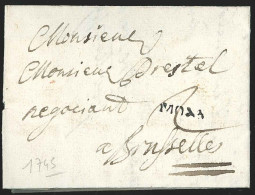 Monsieur
Monsieur Drestel
negociant
a Brusselles
1745